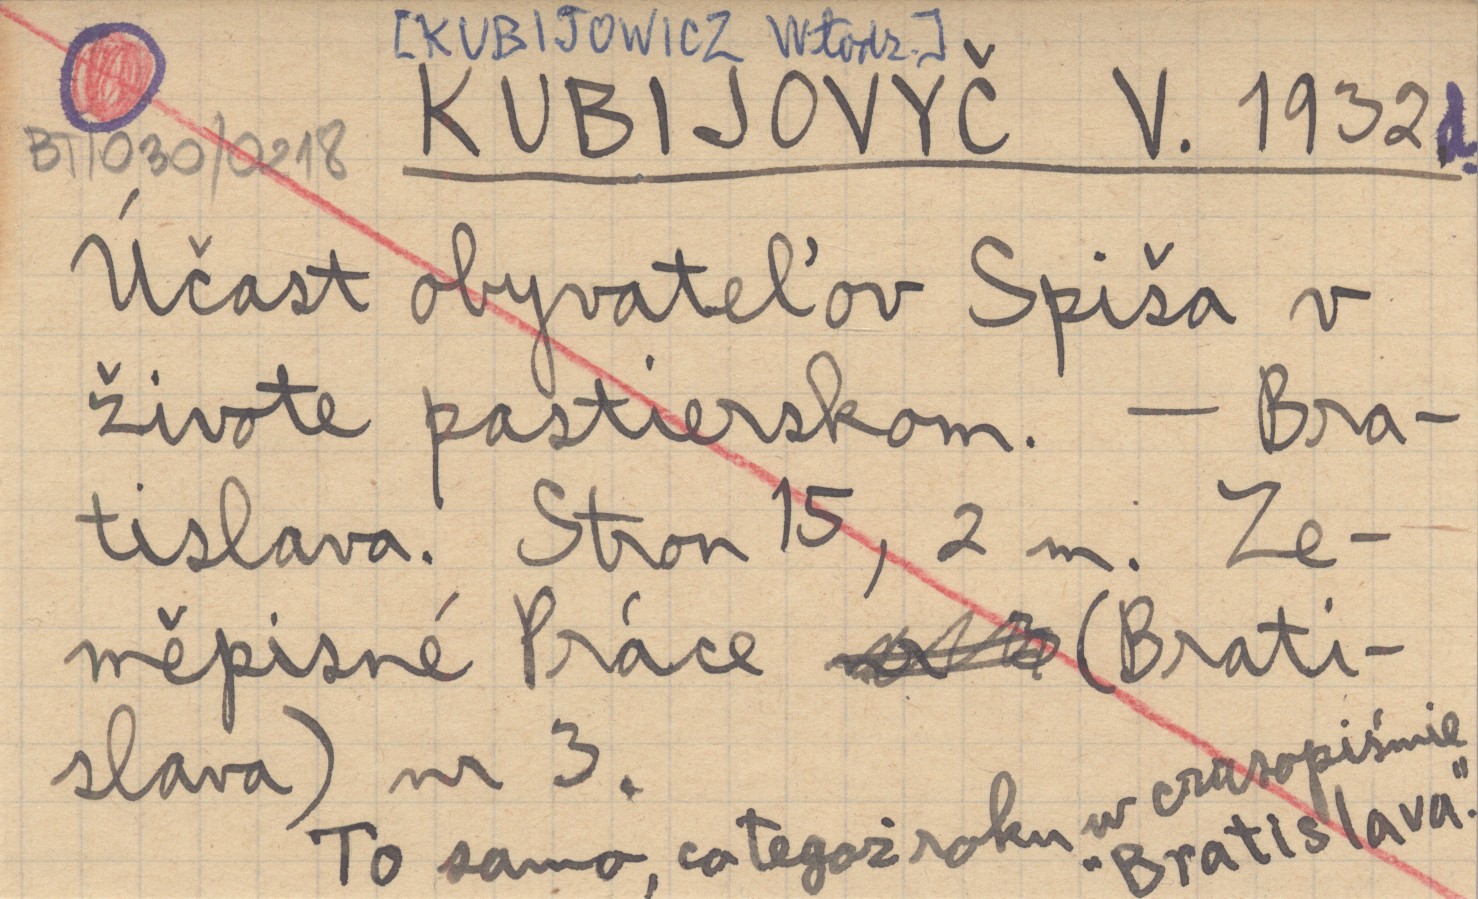 [KUBIJOWICZ Włodz.]
KUBIJOVYČ V. 1932d.
BT/030/0218
Účast obyvateľov Spiša v
živote pastierskom. — Bra-
tislava. Stron 15, 2 m. Ze-
měpisné Práce (Brati-
slava) nr 3.
To samo, tegoż roku w czasopiśmie
"Bratislava".